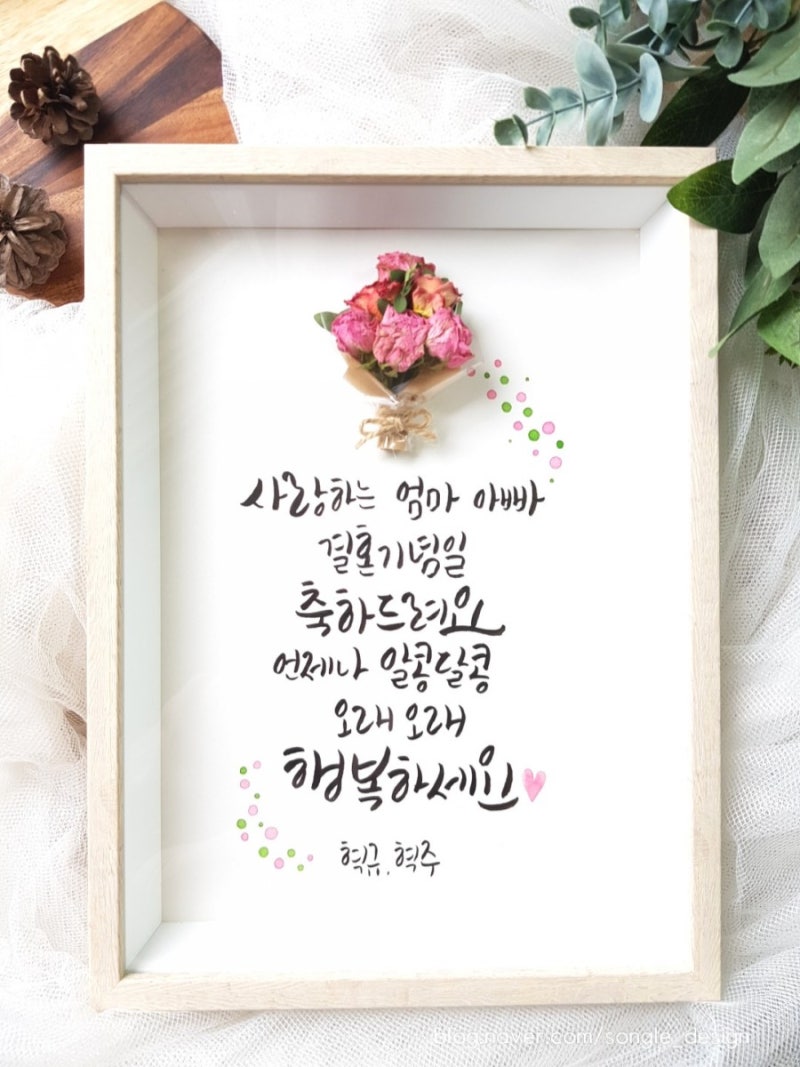 사랑하는 엄마 아빠
결혼기념일
축하드려요
언제나 알콩달콩
오래오래
행복하세요
혁규, 혁주
blog.naver.com/songle_design